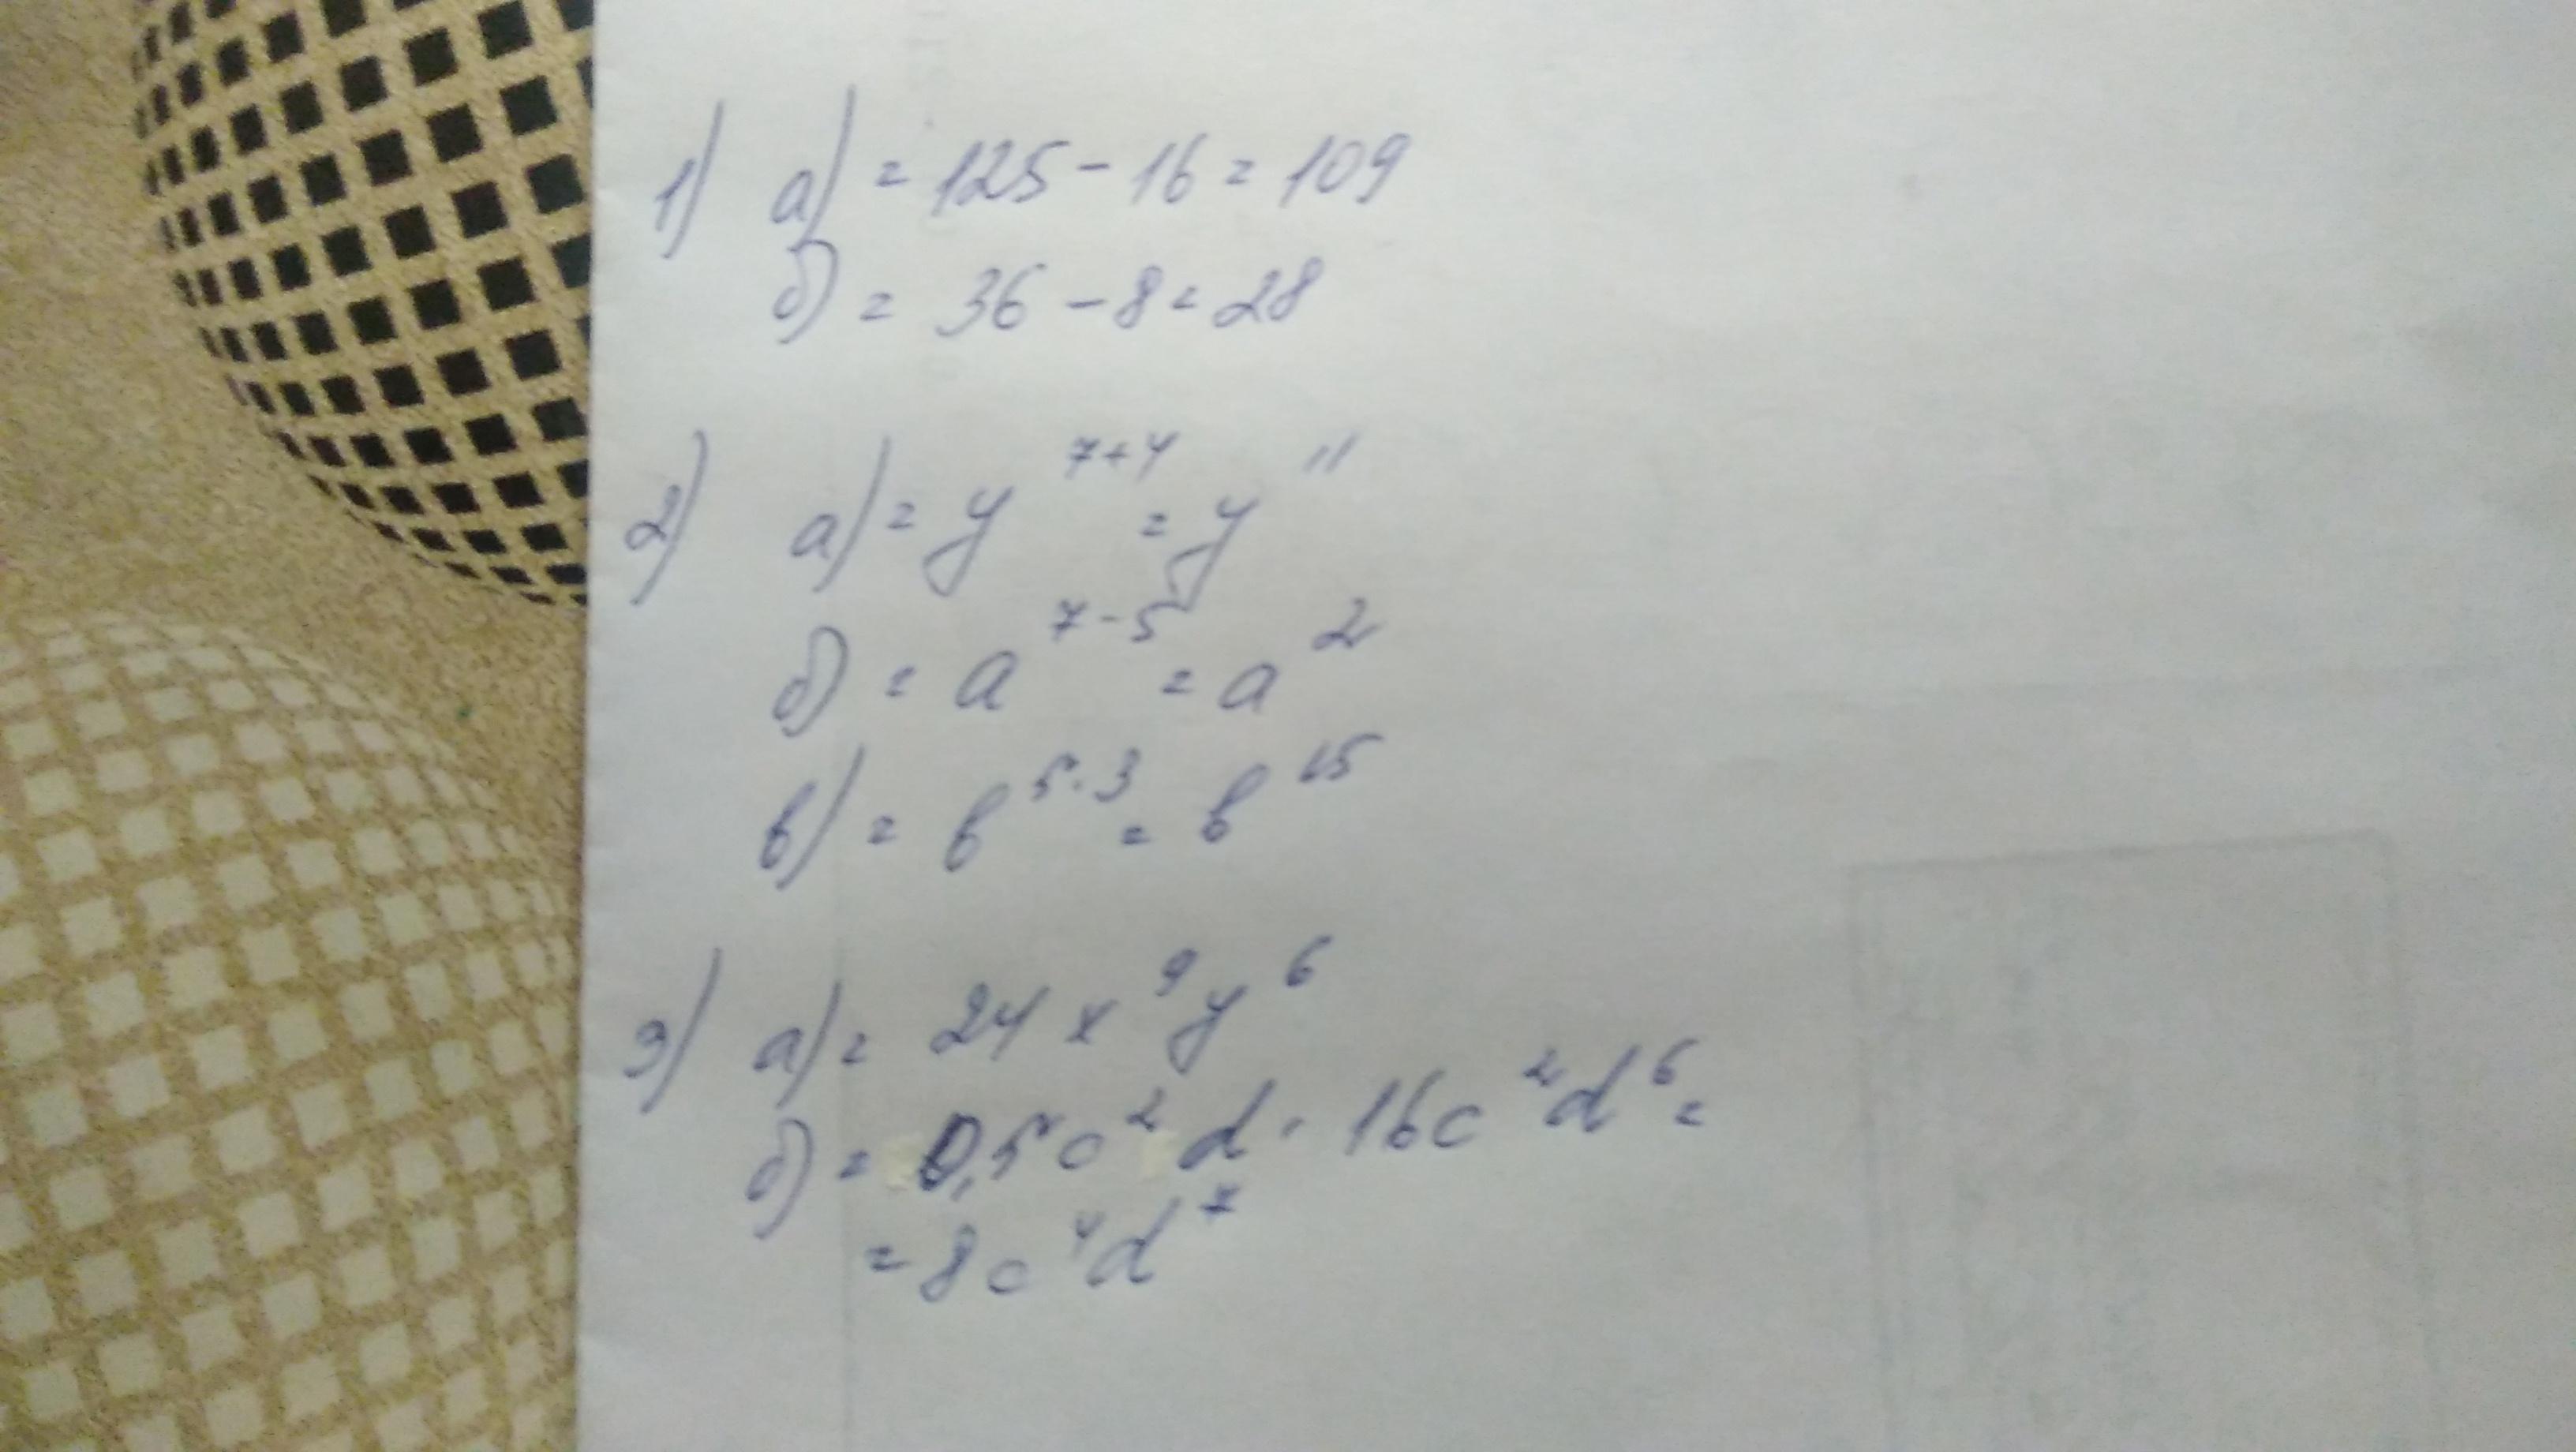 1) а) = 125 - 16 = 109
б) = 36 - 8 = 28
2) а) = y⁷⁺⁴ = y¹¹
б) = a⁷⁻⁵ = a²
в) = b⁵·³ = b¹⁵
3) а) = 24x⁹y⁶
б) = 0,5c²d · 16c²d⁶ =
= 8c⁴d⁷